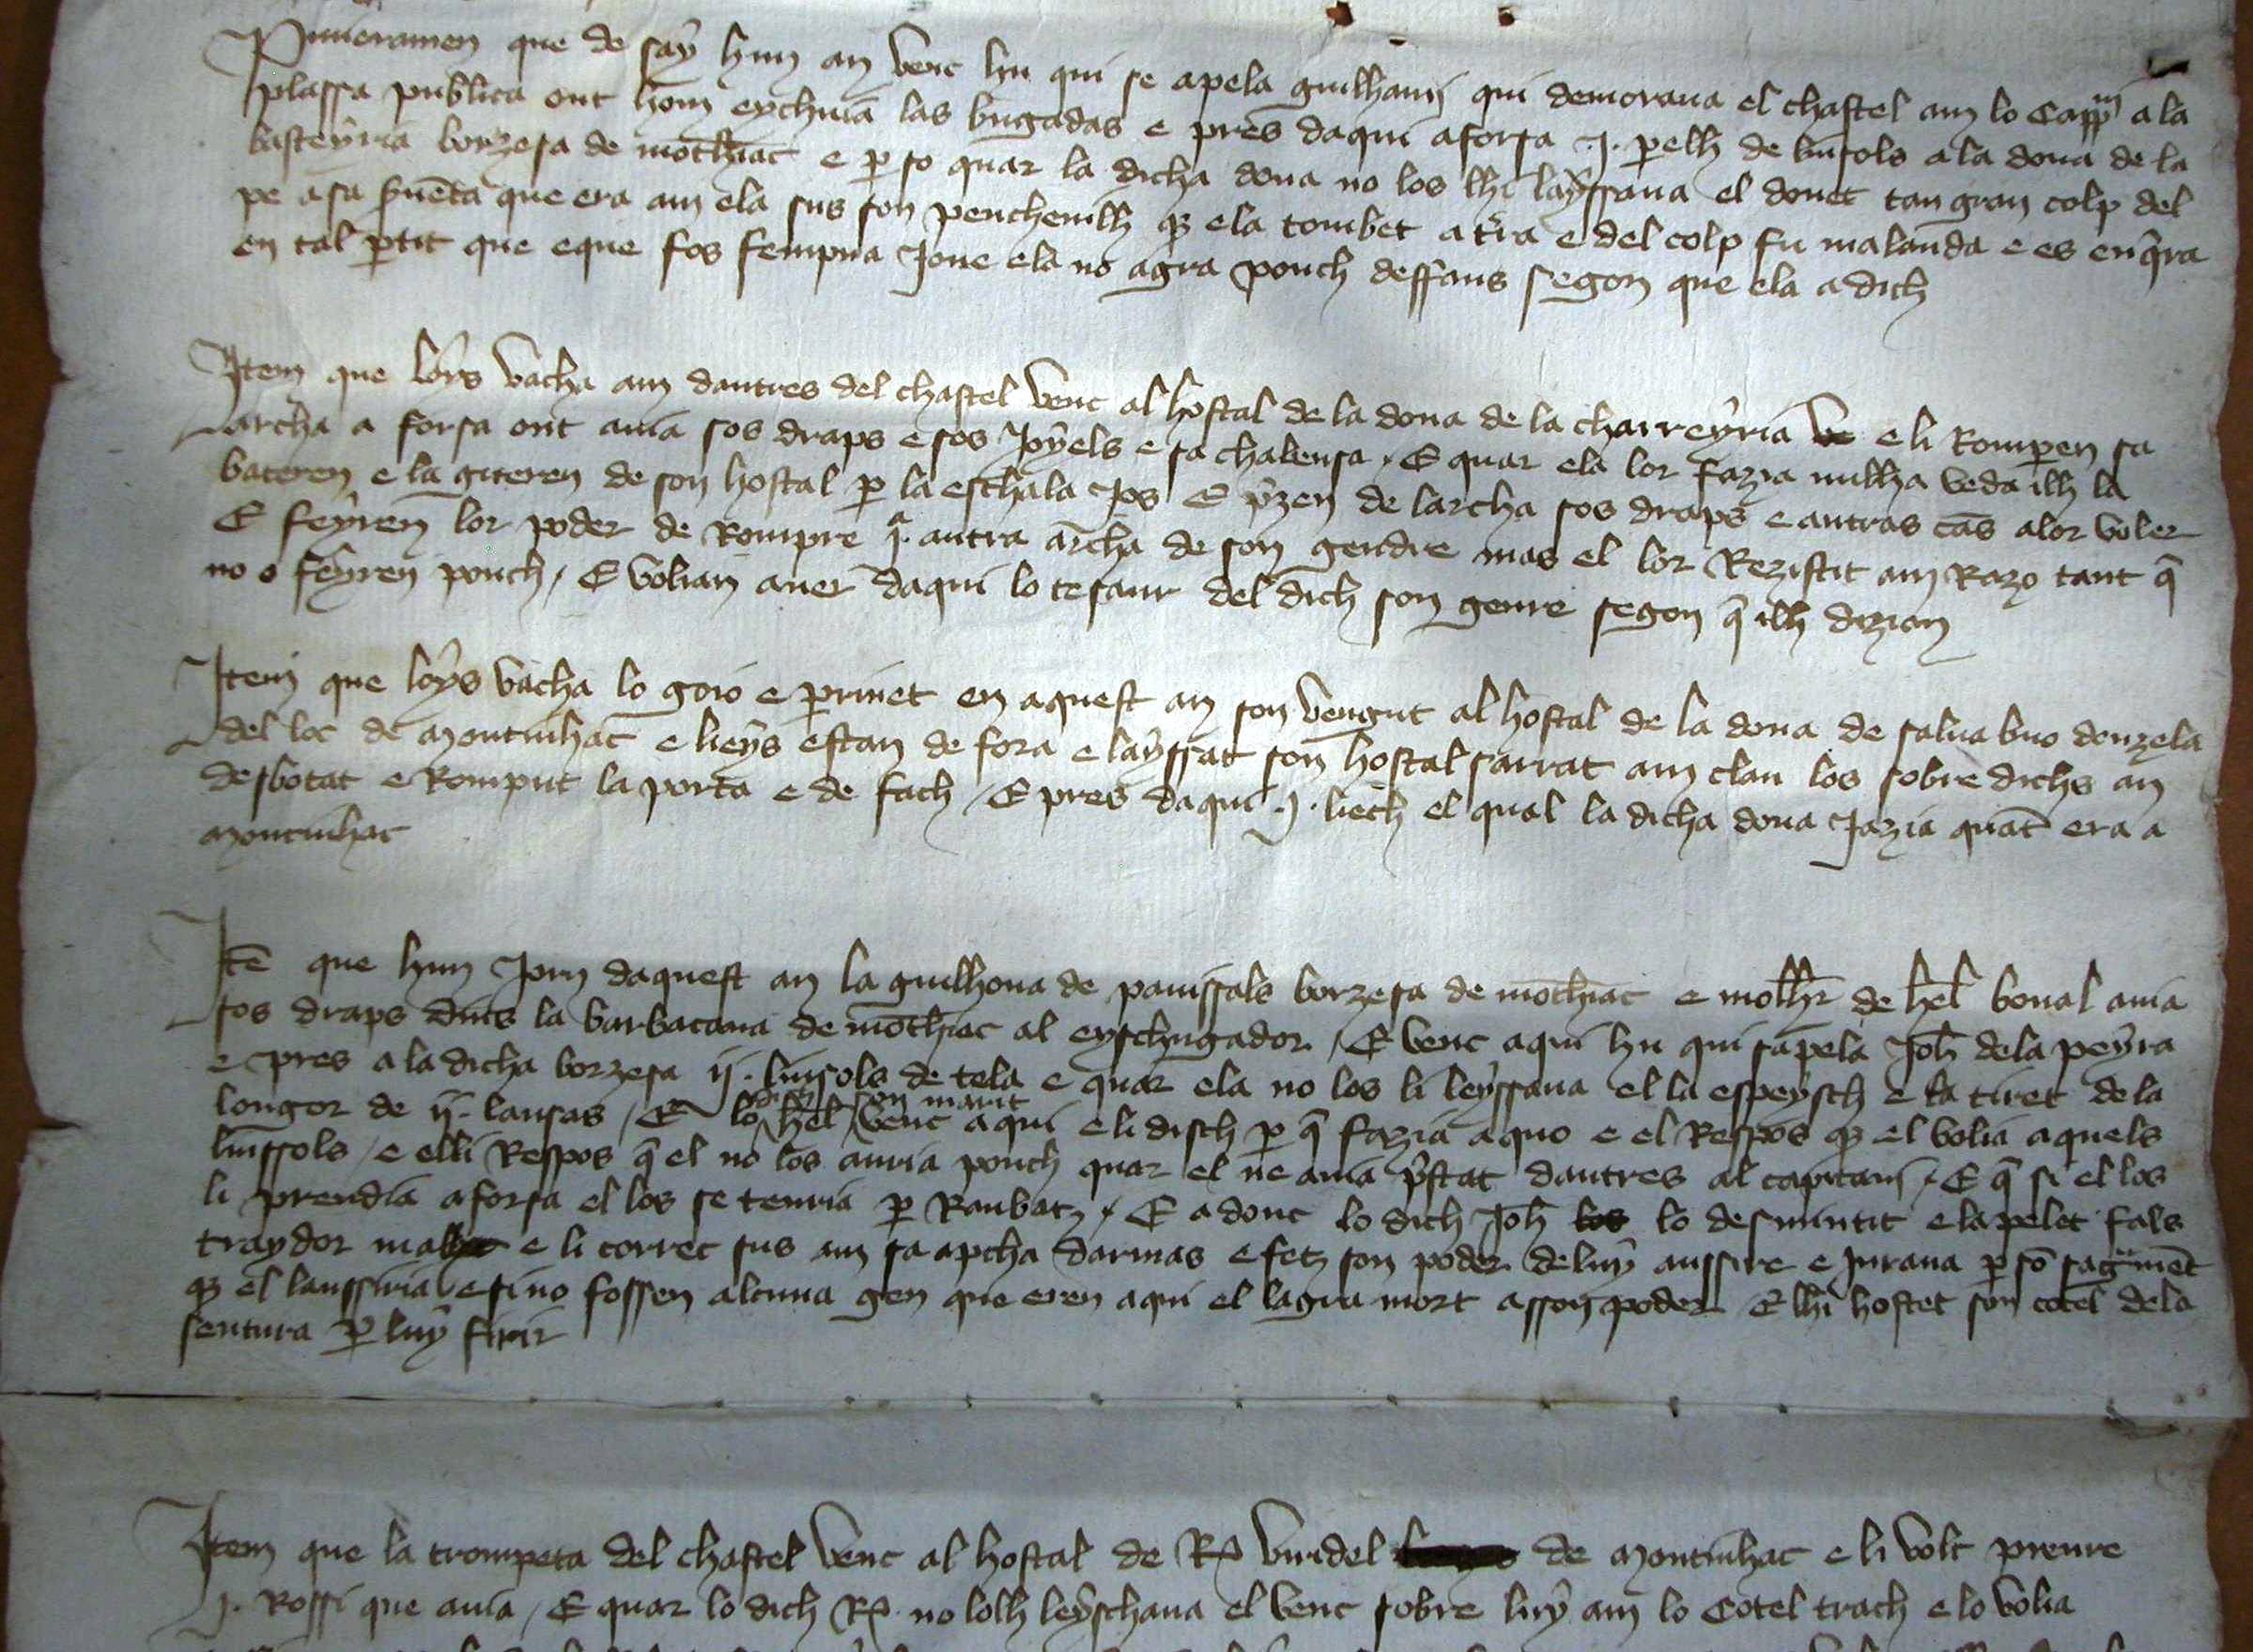 Primeramen que de say hun an venc hu qui se apela guilhami qui demorava el chastel am lo Capp ni a la
plassa publica ont hom eychuia las bugadas e pres daqui a forsa .j. parelh de linsols a la dona de la
basteyria borzesa de mothiac e per so quar la dicha dona no los lhi layssava el donet tan gran colp del
pe a sa sirventa que era am ela sus son penchenilh que ela tombet a terra e del colp fu malauda e es enquera
en tal partit que eque fos fempna Jove ela no agra ponch deffans segon que ela a dich
Item que loys vacha am dautres del chastel venc al hostal de la dona de la charreyria e li Rompen sa
archa a forsa ont avia sos draps e sos Joyels e sa chalensa . E quar ela lor fazia nulha veda ilh la
bateren e la giteren de son hostal per la eschala Jos E prezen de larcha sos draps e autras causas a lor voler
E feyren lor poder de Rompre .j.a autra archa de son gendre mas el lor Rezistit am Razo tant que
no o feyren ponch / E volian aver daqui lo tesaur del dich son genre segon que ilh dizian
Item que loys vacha lo goio e perrinet en aquest an son vengut al hostal de la dona de salva buo donzela
del loc de montinhac e lieys estan de fora e layssat son hostal sarrat am clau los sobre dichs an
desbotat e Romput la porta e de fach / E pres daqui .j. liech el qual la dicha dona Jazia quant era a
montinhac
Ite que hun Jorn daquest an la guilhona de panissals borzesa de mothiac e molher de hel bonal avia
sos draps dins la barbacana de mothiac al eyschugador . / E venc aqui hu qui sapela Joh de la peyra
e pres a la dicha borzesa ij . linsols de tela e quar ela no los li leyssava el la espeysch e la tiret de la
longor de ij . lansas / E lo dich hel son marit venc aqui e li disch per que fazia aquo e el Respos que el volia aquels
linssols / e el li Respos que el no los auria ponch quar el ne avia prestat dautres al capitani / E que si el los
li prendia a forsa el los se tenria per Raubatz / E a donc lo dich Joh lo desmintit e lapelet fals
traydor e li correc sus am sa apcha darmas e fetz son poder de luy aussire e Jurava per so sagrament
que el laussiria e si no fossen alcuna gen que eren aqui el lagra mort a sson poder E lhi hostet son cotel de la
sentura per luy ferir
Item que la trompeta del chastel venc al hostal de R. viridel de montinhac e li volt prenre
.j. Rossi que avia / E quar lo dich R. no lolh leyschava el venc sobre luy am lo Cotel trach e lo volia